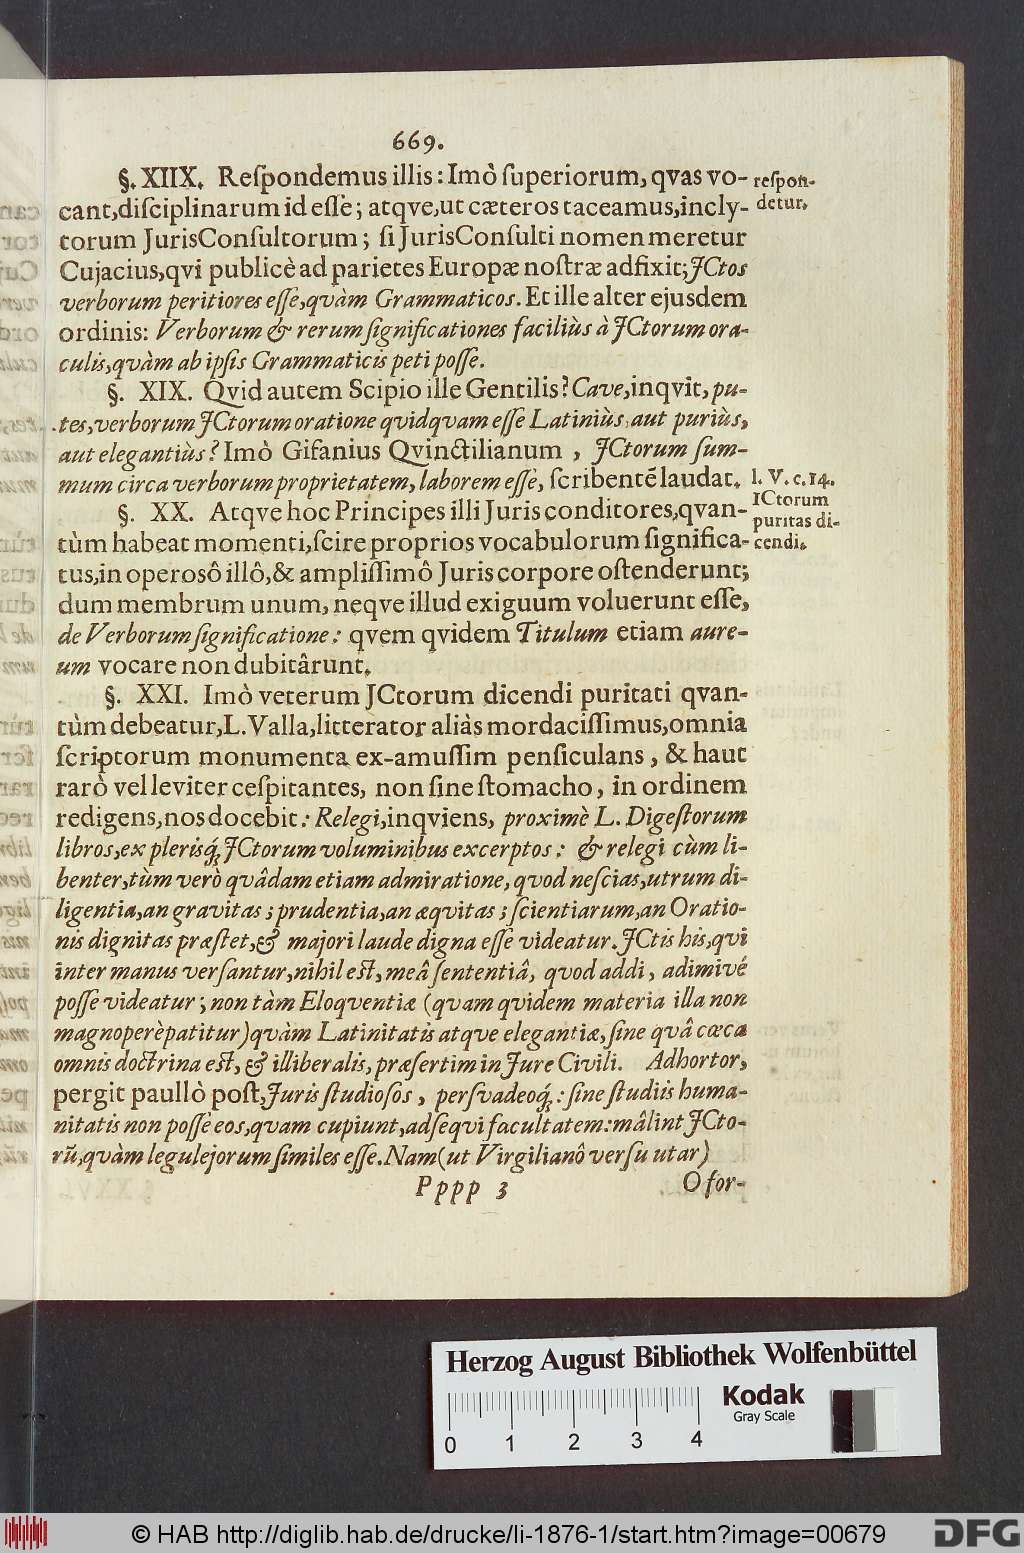 669.
§. XIIX. Reſpondemus illis: Imò ſuperiorum, qvas vo-
cant, diſciplinarum id eſſe; atqve, ut cæteros taceamus, incly-
torum JurisConſultorum; ſi JurisConſulti nomen meretur
Cujacius, qvi publicè ad parietes Europæ noſtræ adfixit; JCtos
verborum peritiores eſſe, quàm Grammaticos. Et ille alter ejusdem
ordinis: Verborum & rerum ſignificationes faciliùs à JCtorum ora-
culis, quàm ab ipſis Grammaticis peti poſſe.
reſpon-
detur.
§. XIX. Qvid autem Scipio ille Gentilis? Cave, inqvit, pu-
tes, verborum JCtorum oratione qvidqvam eſſe Latiniùs, aut puriùs,
aut elegantiùs? Imò Gifanius Qvinctilianum, JCtorum ſum-
mum circa verborum proprietatem, laborem eſſe, ſcribentē laudat.
l. V. c. 14.
§. XX. Atqve hoc Principes illi Juris conditores, qvan-
tùm habeat momenti, ſcire proprios vocabulorum ſignifica-
tus, in operosô illô, & ampliſſimô Juris corpore oſtenderunt;
dum membrum unum, neqve illud exiguum voluerunt eſſe,
de Verborum ſignificatione: qvem qvidem Titulum etiam aure-
um vocare non dubitârunt.
ICtorum
puritas di-
cendi.
§. XXI. Imò veterum JCtorum dicendi puritati qvan-
tùm debeatur, L. Valla, litterator aliàs mordaciſſimus, omnia
ſcriptorum monumenta ex-amuſſim penſiculans, & haut
rarò vel leviter ceſpitantes, non ſine ſtomacho, in ordinem
redigens, nos docebit: Relegi, inqviens, proximè L. Digeſtorum
libros, ex plerisq́; JCtorum voluminibus excerptos: & relegi cùm li-
benter, tùm verò quâdam etiam admiratione, quod neſcias, utrum di-
ligentia, an gravitas; prudentia, an æqvitas; ſcientiarum, an Oratio-
nis dignitas præſtet, & majori laude digna eſſe videatur. JCtis his, qvi
inter manus verſantur, nihil eſt, meâ ſententiâ, quod addi, adimivé
poſſe videatur; non tàm Eloqventiæ (quam quidem materia illa non
magnoperè patitur) quàm Latinitatis atque elegantiæ, ſine quâ cœca
omnis doctrina eſt, & illiberalis, præſertim in Jure Civili. Adhortor,
pergit paullò poſt, Juris ſtudioſos, perſvadeoq́;: ſine ſtudiis huma-
nitatis non poſſe eos, quam cupiunt, adſequi facultatem: mâlint JCto-
rũ, quàm legulejorum ſimiles eſſe. Nam (ut Virgilianô verſu utar)
Pppp 3
O for-
Herzog August Bibliothek Wolfenbüttel
Kodak
Gray Scale
0 1 2 3 4
© HAB http://diglib.hab.de/drucke/li-1876-1/start.htm?image=00679
DFG